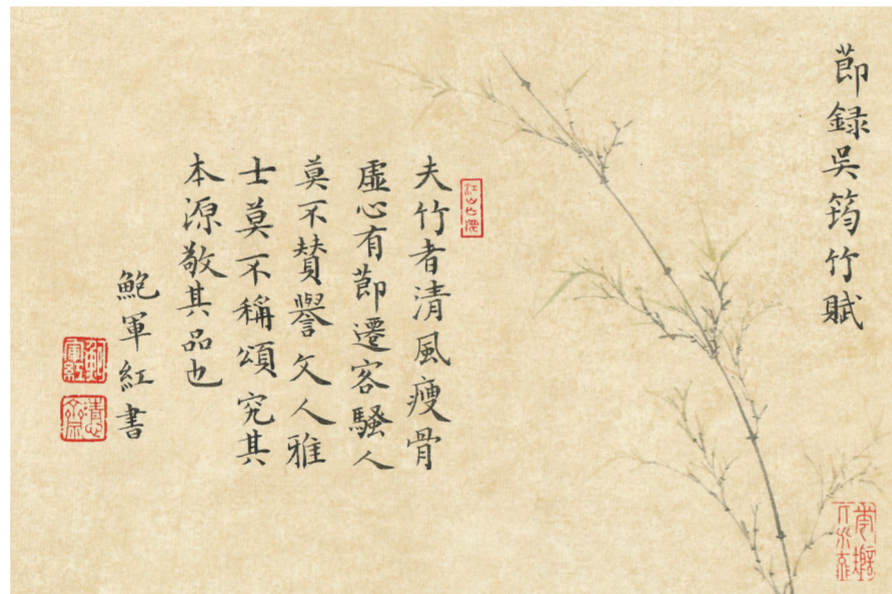 節録吳筠竹賦
夫竹者清風瘦骨
虛心有節遷客騷人
莫不贊譽文人雅
士莫不稱頌究其
本源敬其品也
鮑軍紅書
鮑軍紅